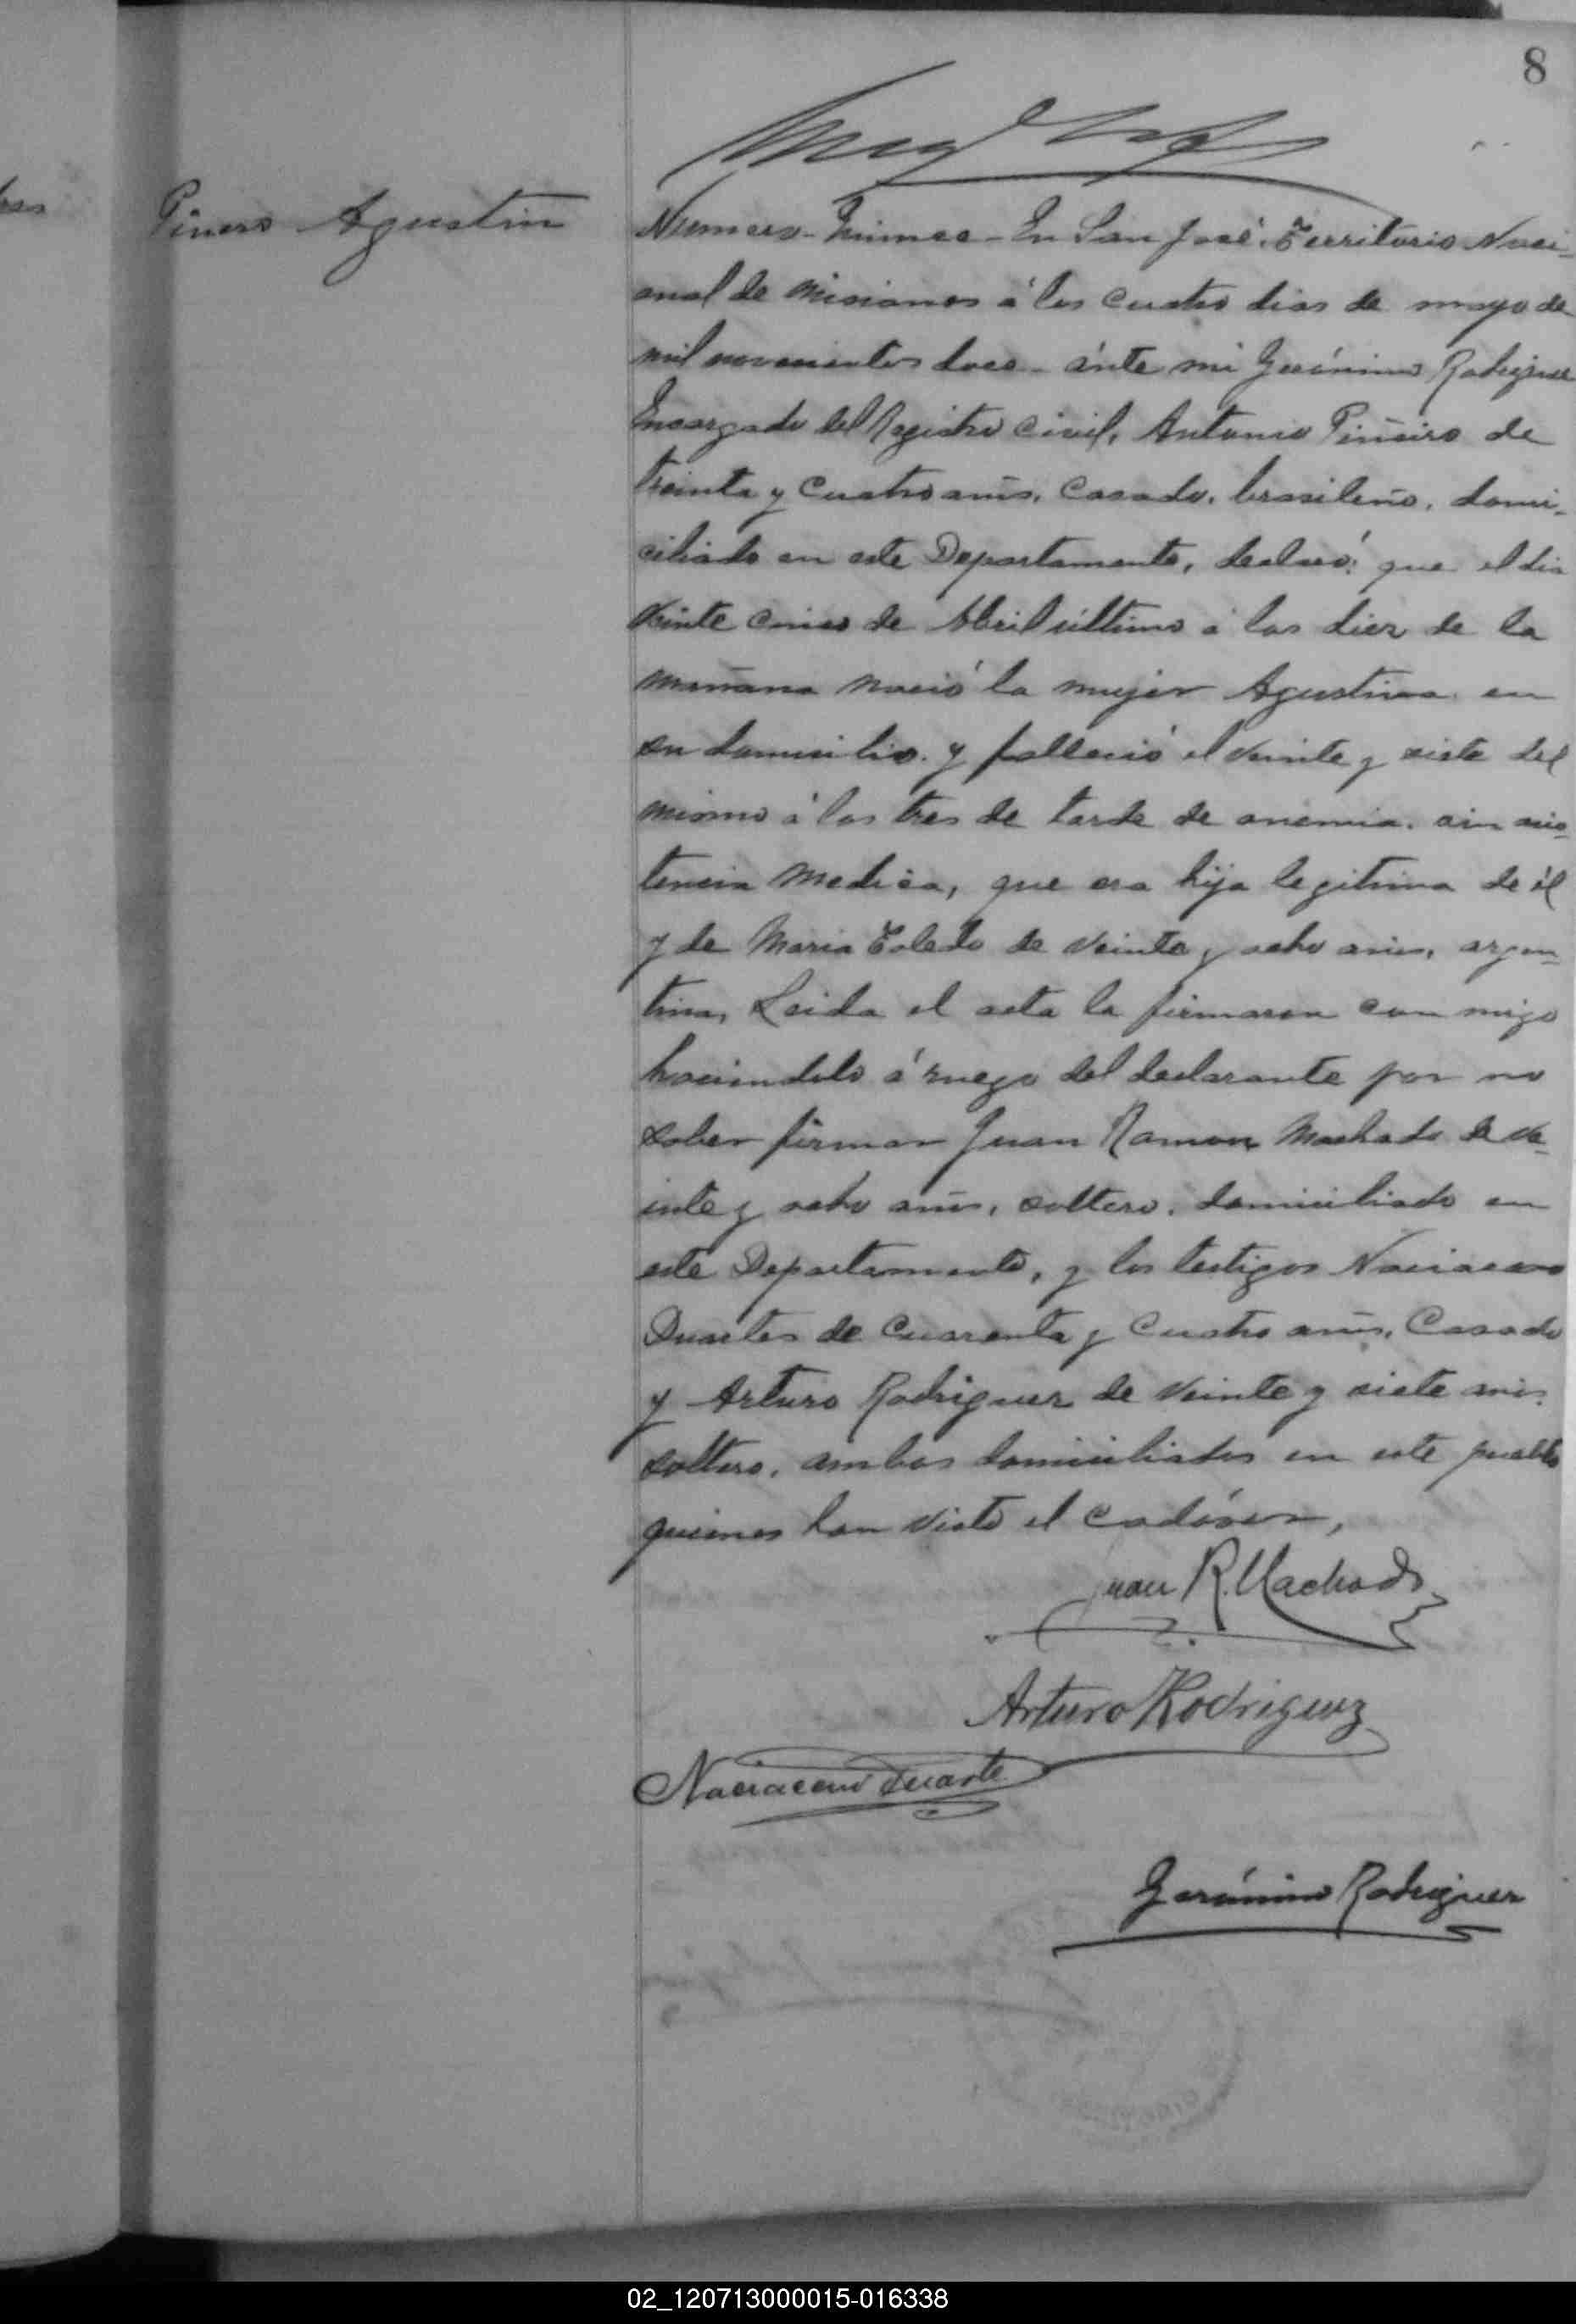 8
Piñero Agustin
Numero Quince - En San José, Territorio Naci-
onal de Misiones á los cuatro dias de mayo de
mil novecientos doce - ánte mi Gerónimo Rodriguez
Encargado del Registro Civil, Antonio Piñeiro de
treinta y cuatro años, casado, brasileño, domi-
ciliado en este Departamento, declaró: que el dia
veinte cinco de Abril último á las diez de la
mañana nació la mujer Agustina en
su domicilio y falleció el veinte y siete del
mismo á las tres de tarde de anemia, sin asis-
tencia medica, que era hija legitima de él
y de Maria Toledo de veinte y ocho años, argen-
tina, Leida el acta la firmaron con migo
haciendolo á ruego del declarante por no
saber firmar Juan Ramon Machado de ve-
inte y ocho años, soltero, domiciliado en
este Departamento, y los testigos Naciaceno
Duartes de cuarenta y cuatro años, Casado
y Arturo Rodriguez de veinte y siete años
soltero, ambos domiciliados en este pueblo
quienes han visto el cadáver,
Juan R. Machado
Arturo Rodriguez
Naciaceno Duarte
Gerónimo Rodriguez
02_120713000015-016338